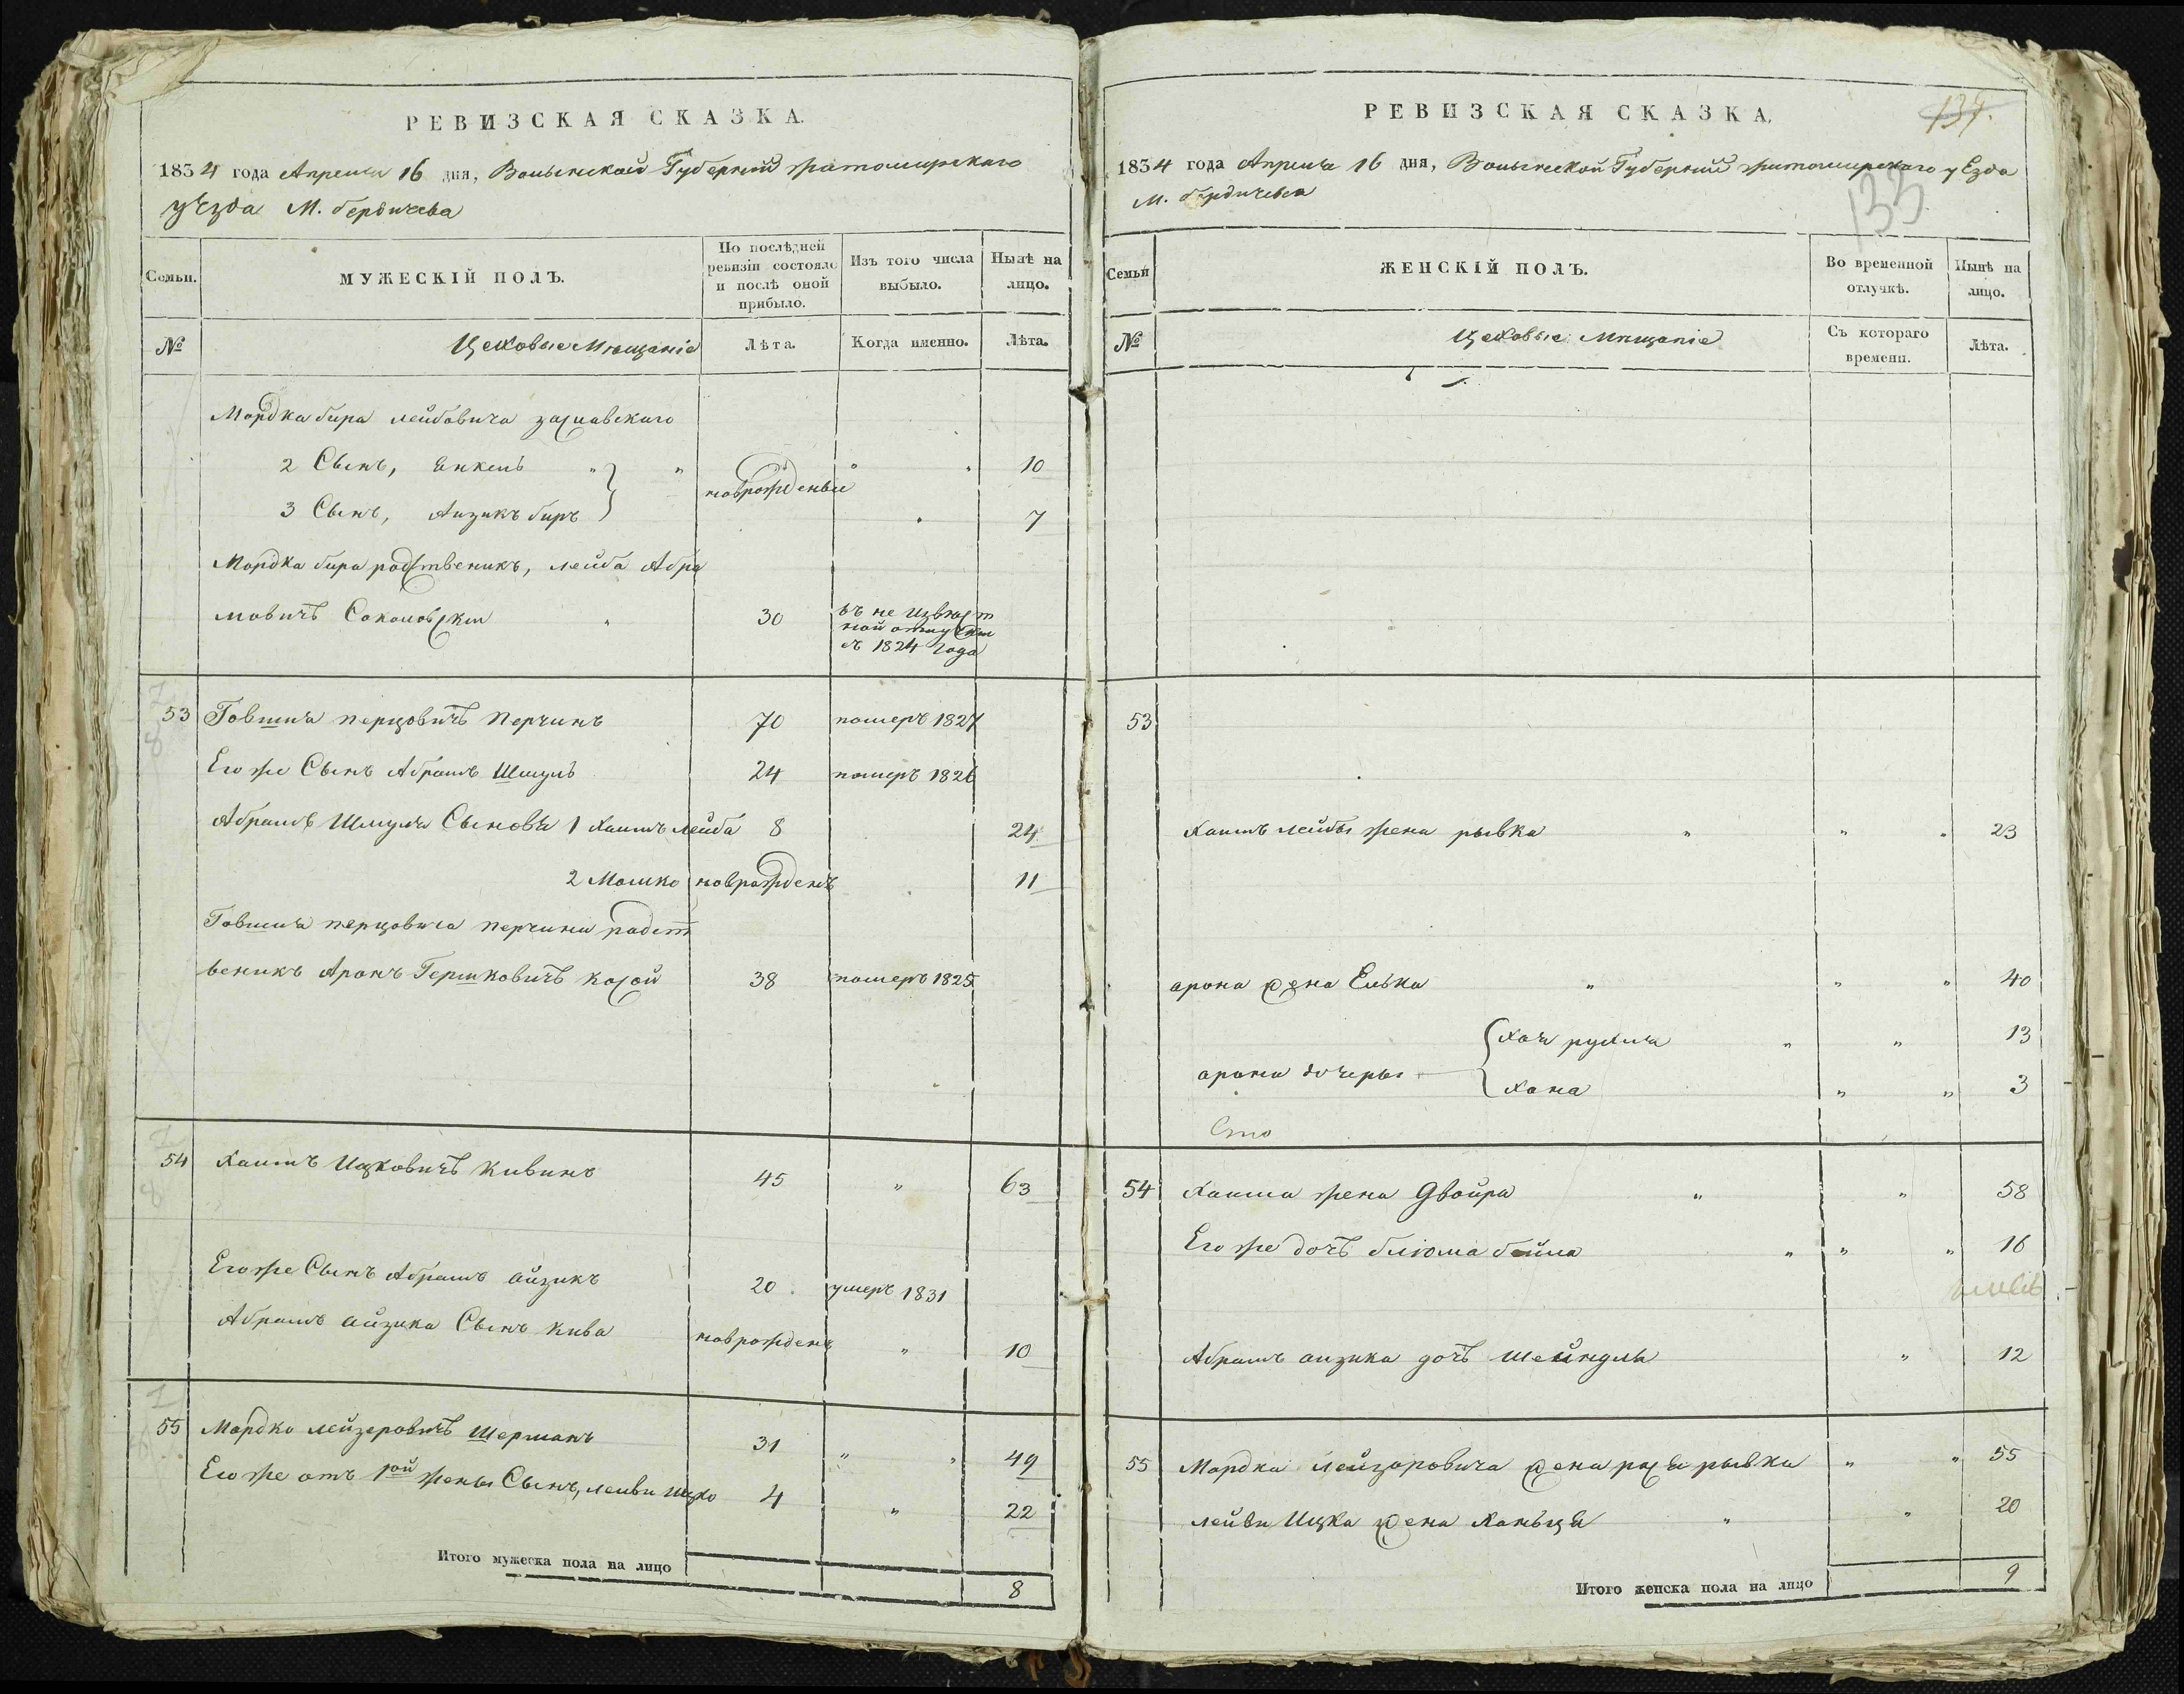 РЕВИЗСКАЯ СКАЗКА.
1834 года Апреля 16 дня, Волынской Губерний житомирскаго
уезда М. бердичева
Семьи.
МУЖЕСКІЙ ПОЛЪ.
По послѣдней ревизіи состояло и послѣ оной прибыло.
Изъ того числа выбыло.
Нынѣ на лицо.
№
Цеховые Мещаніе
Лѣта.
Когда именно.
Лѣта.
Мордка бира лейбовича заславскаго
2 Сынъ, Янкель " " " " 10
новрожденые
3 Сынъ, Аизикъ биръ " 7
Мордка бира родственикъ, лейба Абра
мовичъ Соколовски " 30 въ не извест
ной отлучки
съ 1824 года
53 Говшия перцовичъ Перчинъ 70 померъ 1827
Его же Сынъ Абрамъ Шмуль 24 померъ 1826
Абрамъ Шмуля Сыновя 1 Хаимъ лейба 8 24
2 Мошко новрожденъ 11
Говшия перцовича перчина родст
веникъ Аронъ Гершковичъ косой 38 померъ 1825
54 Хаимъ Ицковичъ Кивинъ 45 " 63
Его же Сынъ Абрамъ айзикъ 20 умеръ 1831
Абрамъ айзика Сынъ Кива новрожденъ " 10
55 Мордко лейзеровичъ Шерманъ 31 " " 49
Его же отъ 1ой жены Сынъ, лейви Ицко 4 " 22
Итого мужеска пола на лицо 8
РЕВИЗСКАЯ СКАЗКА.
139.
1834 года Апреля 16 дня, Волынской Губерний житомирскаго уезда
М. бердичева
133
Семьи
ЖЕНСКІЙ ПОЛЪ.
Во временной отлучкѣ.
Нынѣ на лицо.
№
Цеховые Мещаніе
Съ котораго времени.
Лѣта.
53
Хаимъ лейбы жена рывка " " " 23
арона жена Елька " " " 40
арона дочеры { Хая рухля " " 13
Хана " " 3
54 Хаима жена Двойра " " 58
Его же дочъ блюма бейла " " " 16
Абрамъ аизика дочъ шейндля " 12
55 Мордка лейзоровича жена рыся рывка " " 55
лейви Ицка жена Ханьця " " 20
Итого женска пола на лицо 9